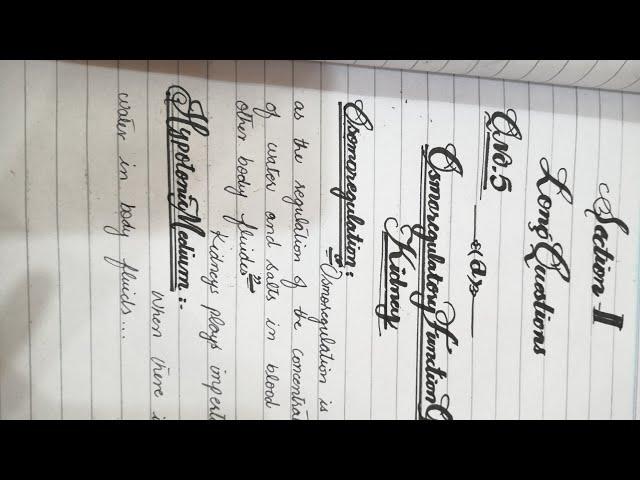 Section-II
Long Questions
Q.No.5
(a)
Osmoregulatory Function O
Kidney
Osomoregulation:
"Osmoregulation is
as the regulation of the concentrat
of water and salts in blood
other body fluides"
Kidneys plays import
Hypotonic Medium:-
When there i
water in body fluids...